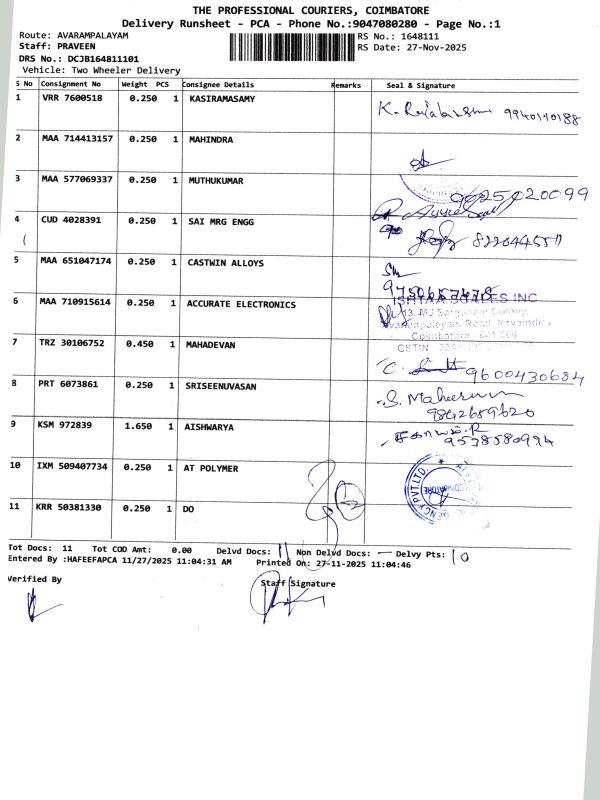 THE PROFESSIONAL COURIERS, COIMBATORE
Delivery Runsheet - PCA - Phone No.:9047080280 - Page No.:1
Route: AVARAMPALAYAM
RS No.: 1648111
Staff: PRAVEEN
RS Date: 27-Nov-2025
DRS No.: DCJB164811101
Vehicle: Two Wheeler Delivery
S No Consignment No Weight PCS Consignee Details Remarks Seal & Signature
1 VRR 7600518 0.250 1 KASIRAMASAMY 9940140188
2 MAA 714413157 0.250 1 MAHINDRA
3 MAA 577069337 0.250 1 MUTHUKUMAR 9025020099
4 CUD 4028391 0.250 1 SAI MRG ENGG
5 MAA 651047174 0.250 1 CASTWIN ALLOYS
6 MAA 710915614 0.250 1 ACCURATE ELECTRONICS
7 TRZ 30106752 0.450 1 MAHADEVAN 9600430684
8 PRT 6073861 0.250 1 SRISEENUVASAN
9842659620
9 KSM 972839 1.650 1 AISHWARYA
9538580994
10 IXM 509407734 0.250 1 AT POLYMER
11 KRR 50381330 0.250 1 DO
Tot Docs: 11 Tot COD Amt: 0.00 Delvd Docs: 11 Non Delvd Docs: — Delvy Pts: 10
Entered By :HAFEEFAPCA 11/27/2025 11:04:31 AM Printed On: 27-11-2025 11:04:46
Verified By
Staff Signature